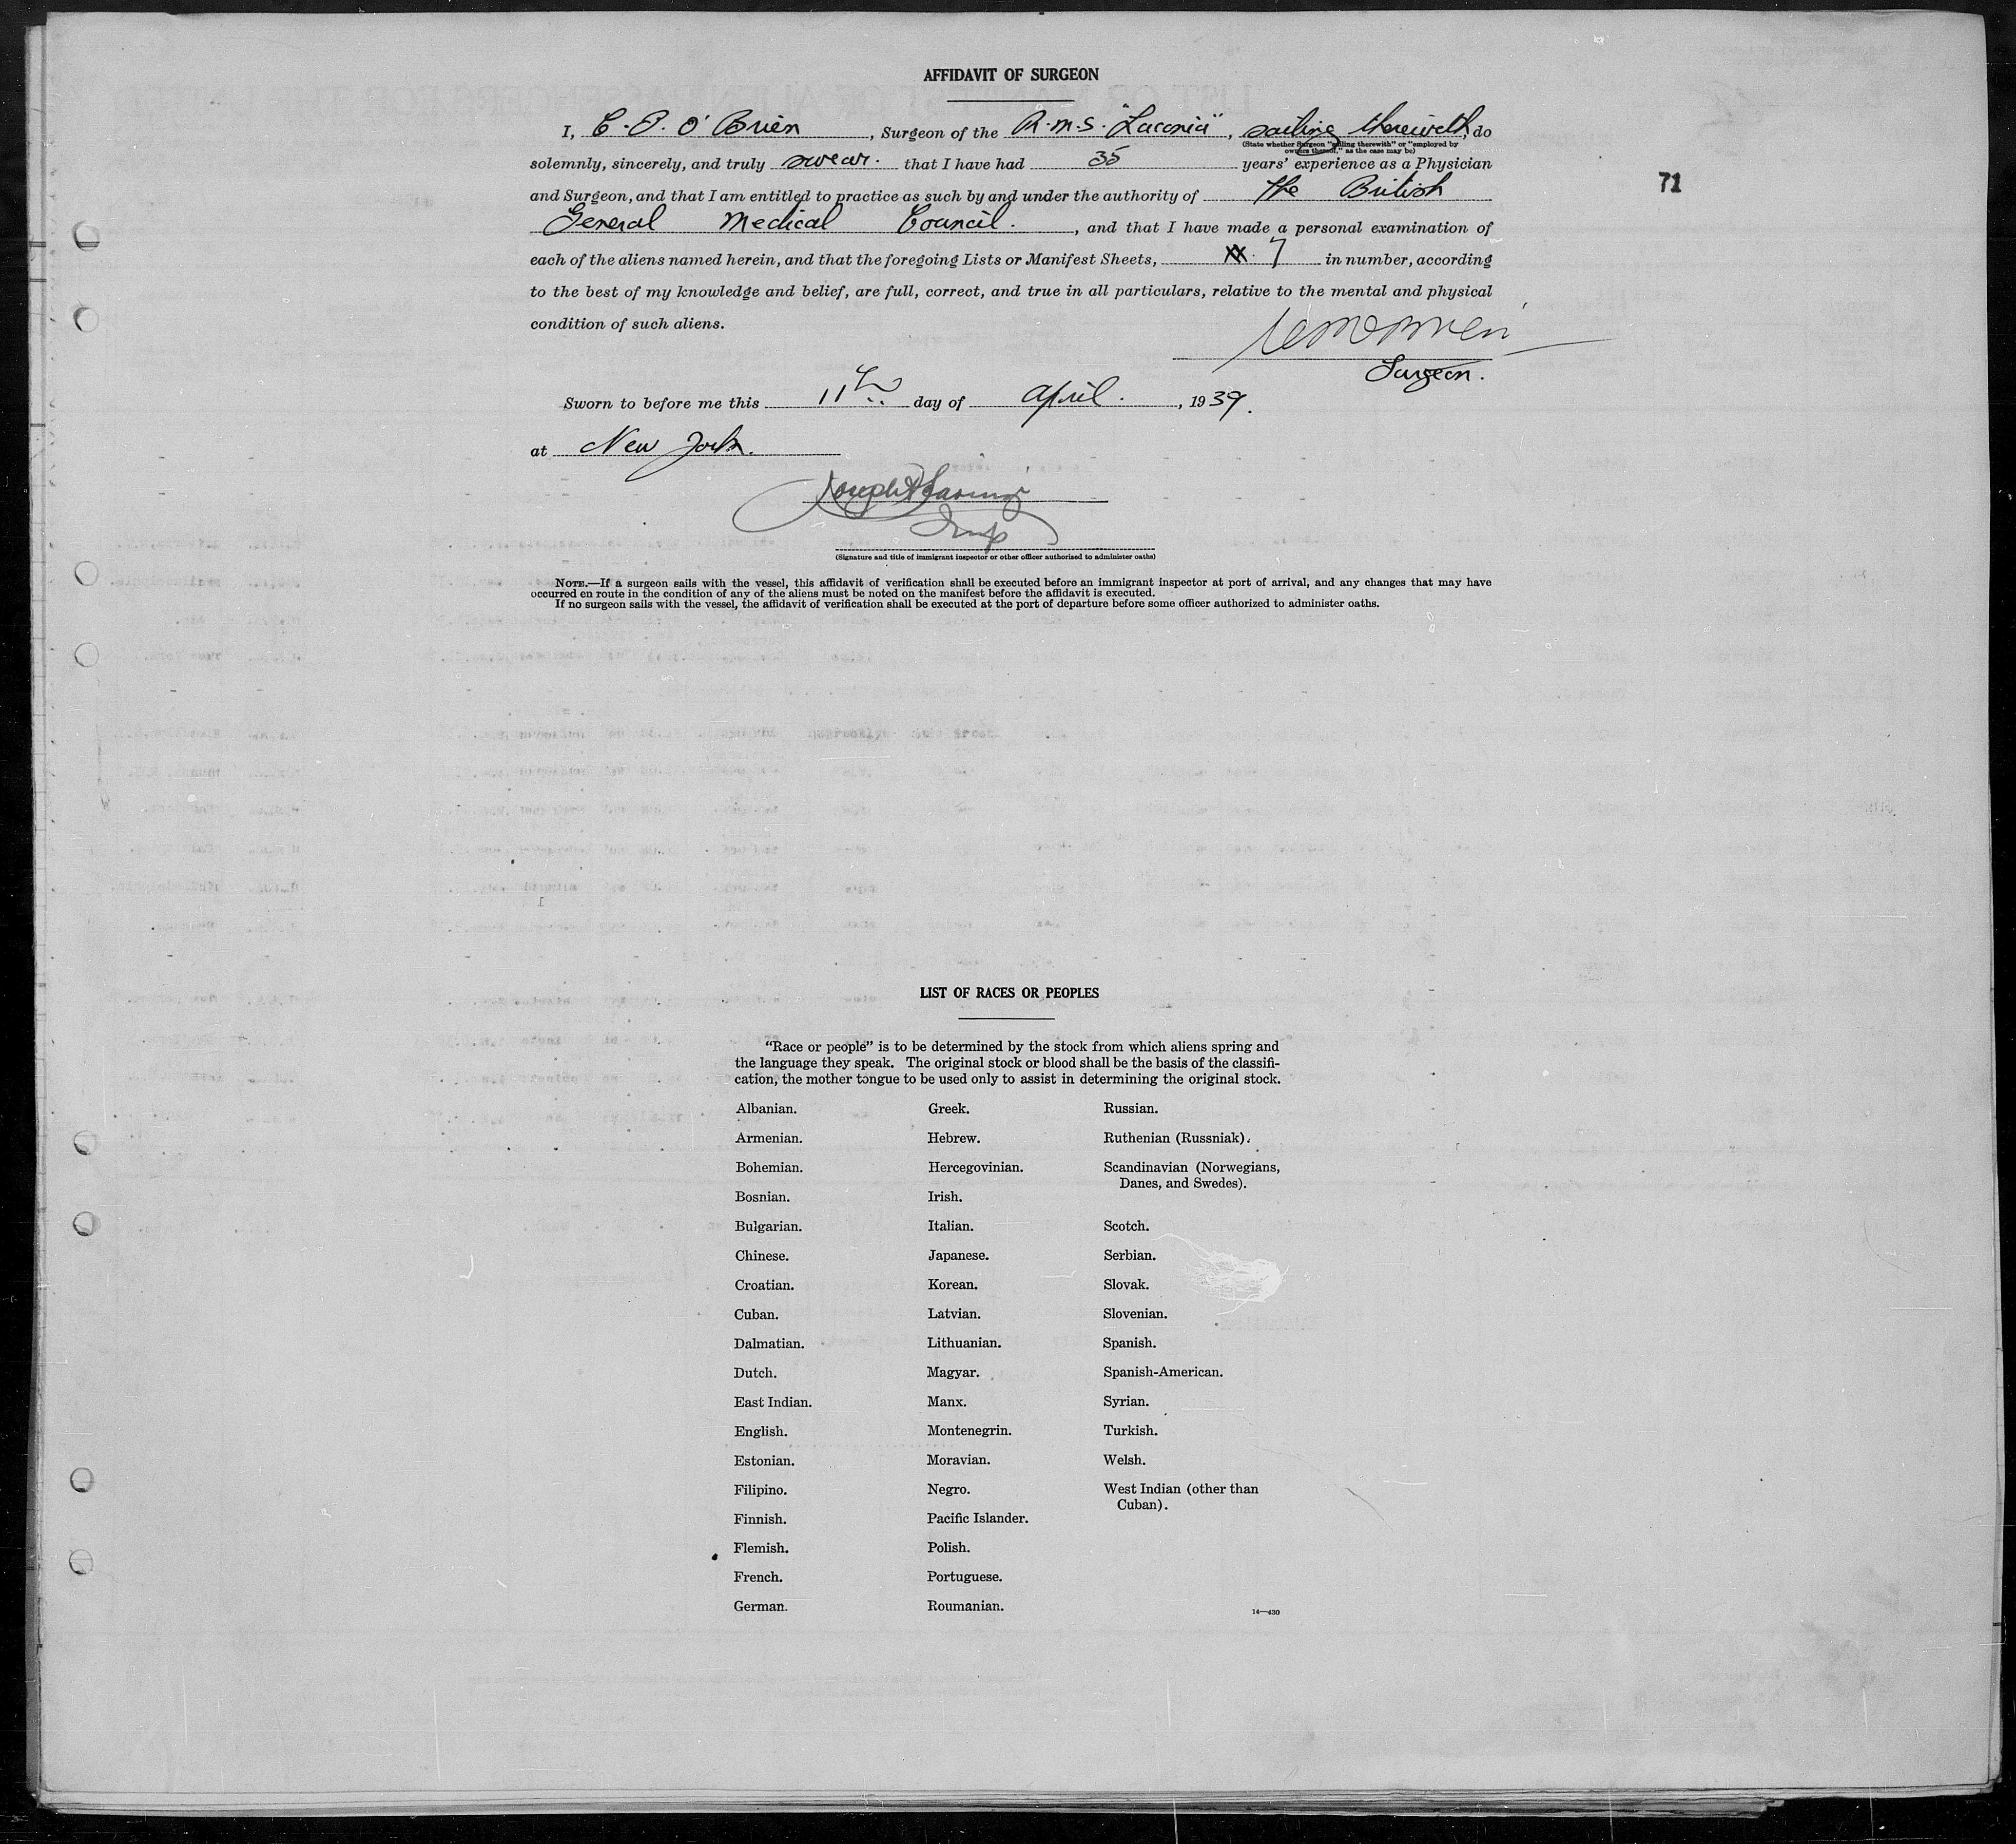 AFFIDAVIT OF SURGEON
I, C. P. O'Brien, Surgeon of the R.M.S. "Laconia", sailing therewith, do
(State whether Surgeon "sailing therewith" or "employed by
owners thereof," as the case may be)
solemnly, sincerely, and truly swear. that I have had 35 years' experience as a Physician
71
and Surgeon, and that I am entitled to practice as such by and under the authority of the British
General Medical Council., and that I have made a personal examination of
each of the aliens named herein, and that the foregoing Lists or Manifest Sheets, 7 in number, according
to the best of my knowledge and belief, are full, correct, and true in all particulars, relative to the mental and physical
condition of such aliens.
Surgeon.
Sworn to before me this 11th day of April., 1939.
at New York.
Joseph
Insp
(Signature and title of immigrant inspector or other officer authorized to administer oaths)
NOTE.—If a surgeon sails with the vessel, this affidavit of verification shall be executed before an immigrant inspector at port of arrival, and any changes that may have
occurred en route in the condition of any of the aliens must be noted on the manifest before the affidavit is executed.
If no surgeon sails with the vessel, the affidavit of verification shall be executed at the port of departure before some officer authorized to administer oaths.
LIST OF RACES OR PEOPLES
"Race or people" is to be determined by the stock from which aliens spring and
the language they speak. The original stock or blood shall be the basis of the classifi-
cation, the mother tongue to be used only to assist in determining the original stock.
Albanian.
Armenian.
Bohemian.
Bosnian.
Bulgarian.
Chinese.
Croatian.
Cuban.
Dalmatian.
Dutch.
East Indian.
English.
Estonian.
Filipino.
Finnish.
Flemish.
French.
German.
Greek.
Hebrew.
Hercegovinian.
Irish.
Italian.
Japanese.
Korean.
Latvian.
Lithuanian.
Magyar.
Manx.
Montenegrin.
Moravian.
Negro.
Pacific Islander.
Polish.
Portuguese.
Roumanian.
Russian.
Ruthenian (Russniak).
Scandinavian (Norwegians,
Danes, and Swedes).
Scotch.
Serbian.
Slovak.
Slovenian.
Spanish.
Spanish-American.
Syrian.
Turkish.
Welsh.
West Indian (other than
Cuban).
14—430